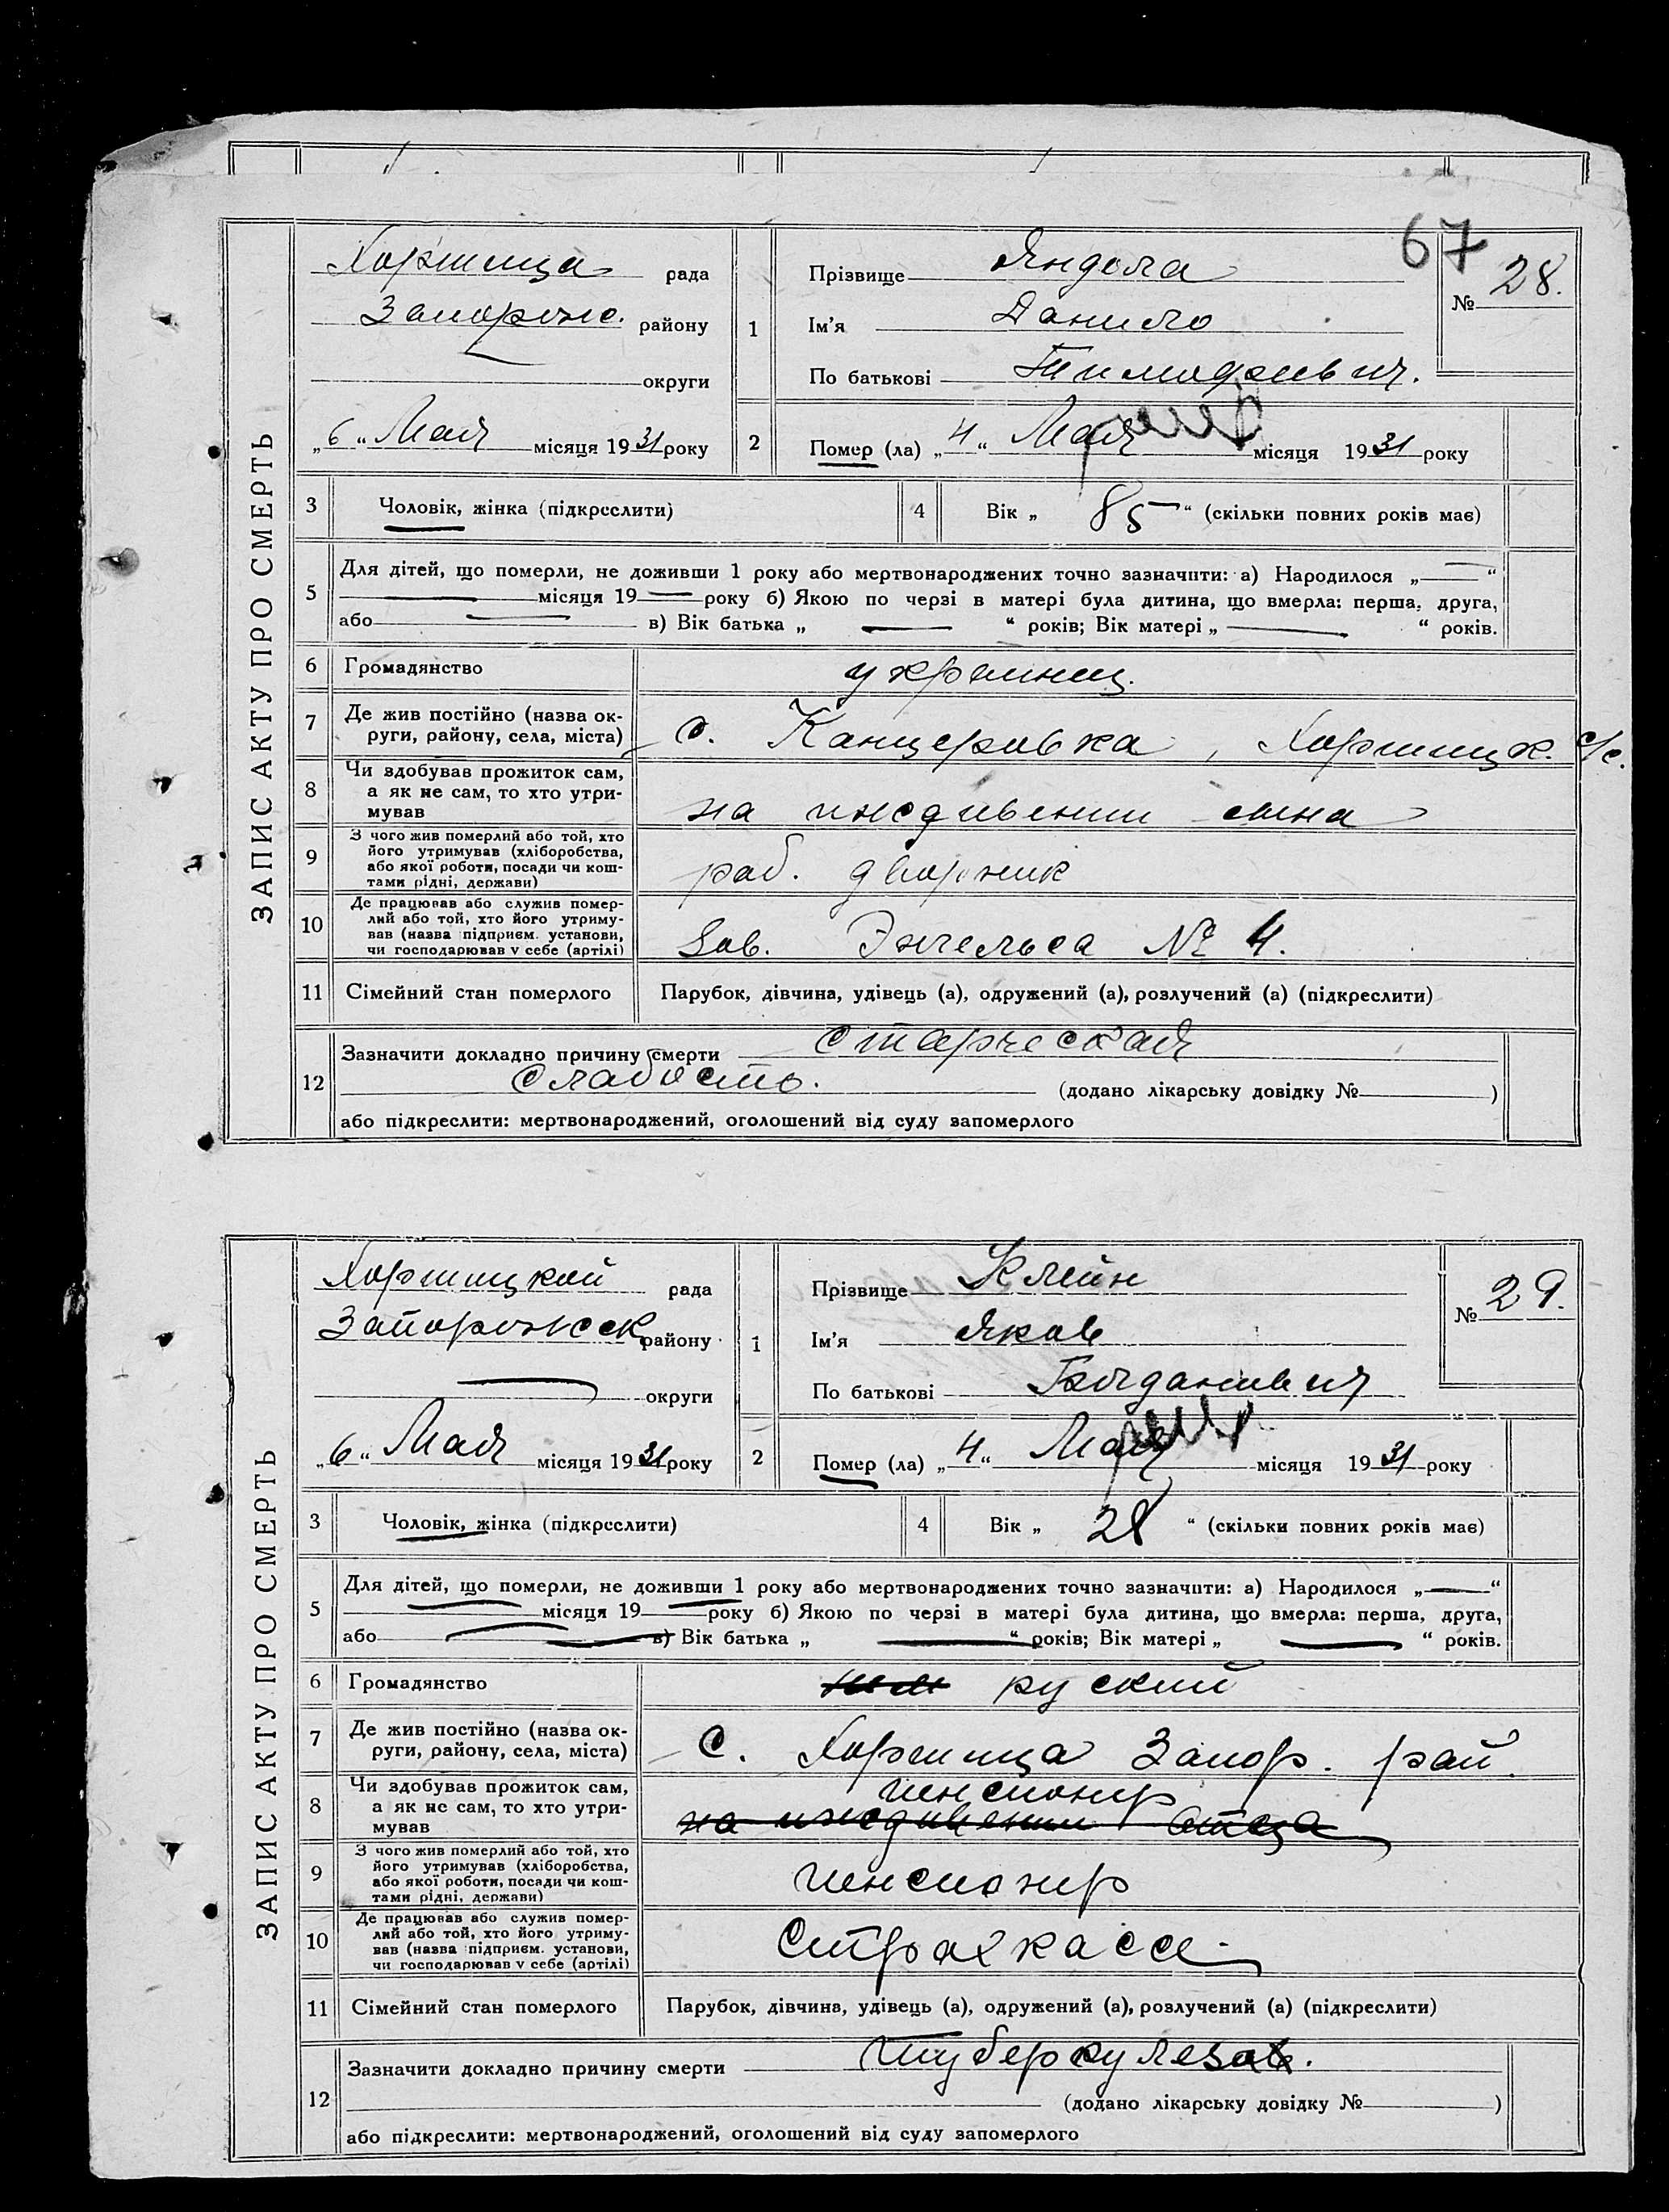 67
ЗАПИС АКТУ ПРО СМЕРТЬ
Хортица рада
Запорож. району
округи
„6“ Мая місяця 1931 року
1
Прізвище Яндола
Ім'я Данило
По батькові Тимофиевич.
№ 28.
2 Помер (ла) „4“ Мая місяця 1931 року
3 Чоловік, жінка (підкреслити)
4 Вік „85“ (скільки повних років має)
5 Для дітей, що померли, не доживши 1 року або мертвонароджених точно зазначити: а) Народилося „—“
— місяця 19— року б) Якою по черзі в матері була дитина, що вмерла: перша, друга,
або — в) Вік батька „ — “ років; Вік матері „ — “ років.
6 Громадянство украинец.
7 Де жив постійно (назва ок-
руги, району, села, міста) с. Канцеровка, Хортицк. с/с.
8 Чи здобував прожиток сам,
а як не сам, то хто утри-
мував на иждивении сына
9 З чого жив померлий або той, хто
його утримував (хліборобства,
або якої роботи, посади чи кош-
тами рідні, держави) раб. дворник
10 Де працював або служив помер-
лий або той, хто його утриму-
вав (назва підприєм. установи,
чи господарював у себе (артілі) Зав. Энгельса № 4.
11 Сімейний стан померлого Парубок, дівчина, удівець (а), одружений (а), розлучений (а) (підкреслити)
12 Зазначити докладно причину смерти старческая
слабость. (додано лікарську довідку № )
або підкреслити: мертвонароджений, оголошений від суду запомерлого
ЗАПИС АКТУ ПРО СМЕРТЬ
Хортицкой рада
Запорожск району
округи
„6“ Мая місяця 1931 року
1
Прізвище Клейн
Ім'я Яков
По батькові Богданович
№ 29.
2 Помер (ла) „4“ Мая місяця 1931 року
3 Чоловік, жінка (підкреслити)
4 Вік „28“ (скільки повних років має)
5 Для дітей, що померли, не доживши 1 року або мертвонароджених точно зазначити: а) Народилося „—“
— місяця 19— року б) Якою по черзі в матері була дитина, що вмерла: перша, друга,
або — в) Вік батька „ — “ років; Вік матері „ — “ років.
6 Громадянство руский
7 Де жив постійно (назва ок-
руги, району, села, міста) с. Хортица Запор. рай.
8 Чи здобував прожиток сам,
а як не сам, то хто утри-
мував пенсионер
на иждивении отца
9 З чого жив померлий або той, хто
його утримував (хліборобства,
або якої роботи, посади чи кош-
тами рідні, держави) пенсионер
10 Де працював або служив помер-
лий або той, хто його утриму-
вав (назва підприєм. установи,
чи господарював у себе (артілі) Страхкассе
11 Сімейний стан померлого Парубок, дівчина, удівець (а), одружений (а), розлучений (а) (підкреслити)
12 Зазначити докладно причину смерти туберкулезов.
(додано лікарську довідку № )
або підкреслити: мертвонароджений, оголошений від суду запомерлого